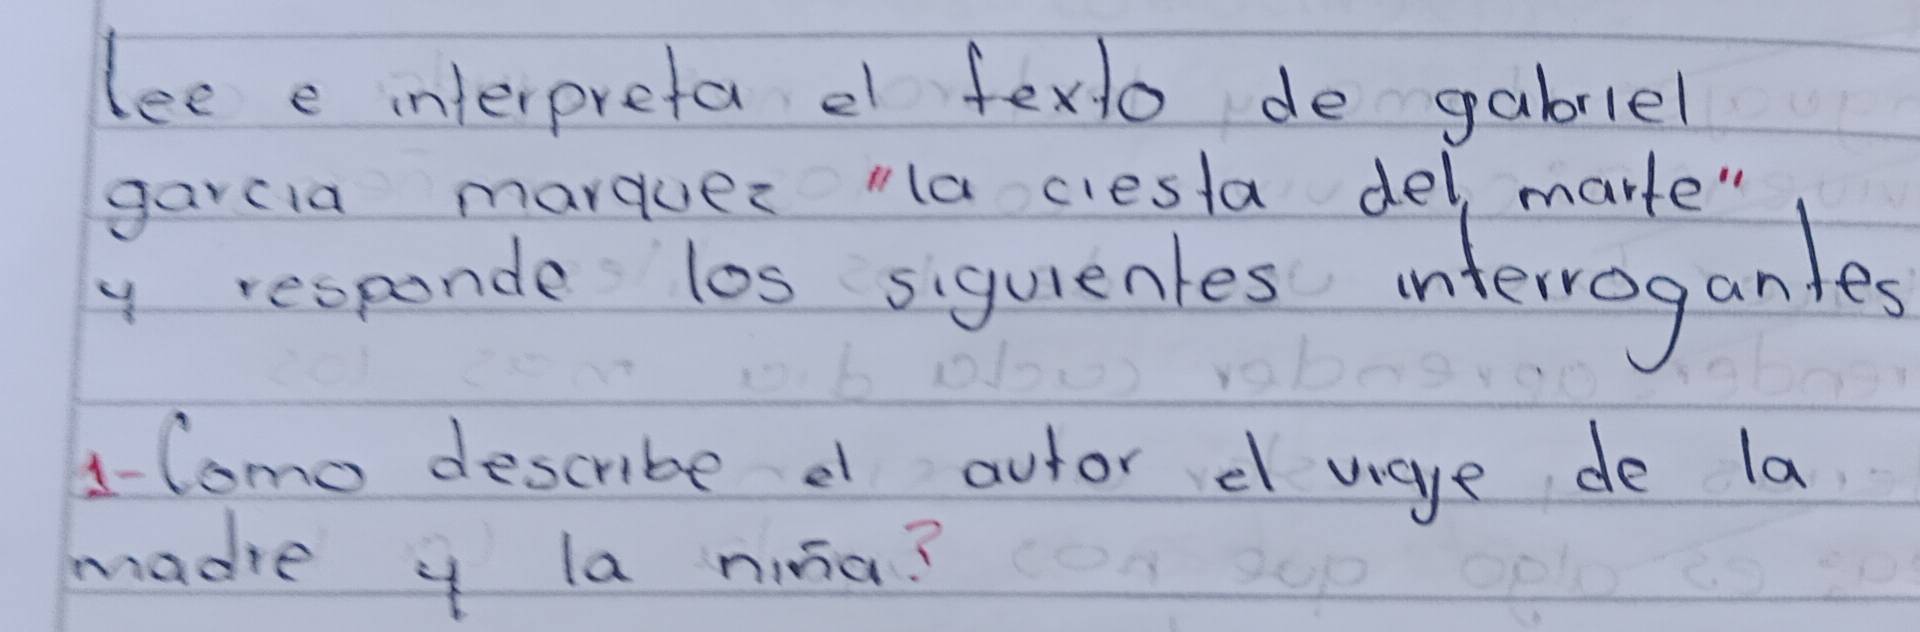 lee e interpreta el texto de gabriel
garcia marquez "la ciesta del marte"
y responde los siguientes interrogantes
1- Como describe el autor el viaje de la
madre y la niña?